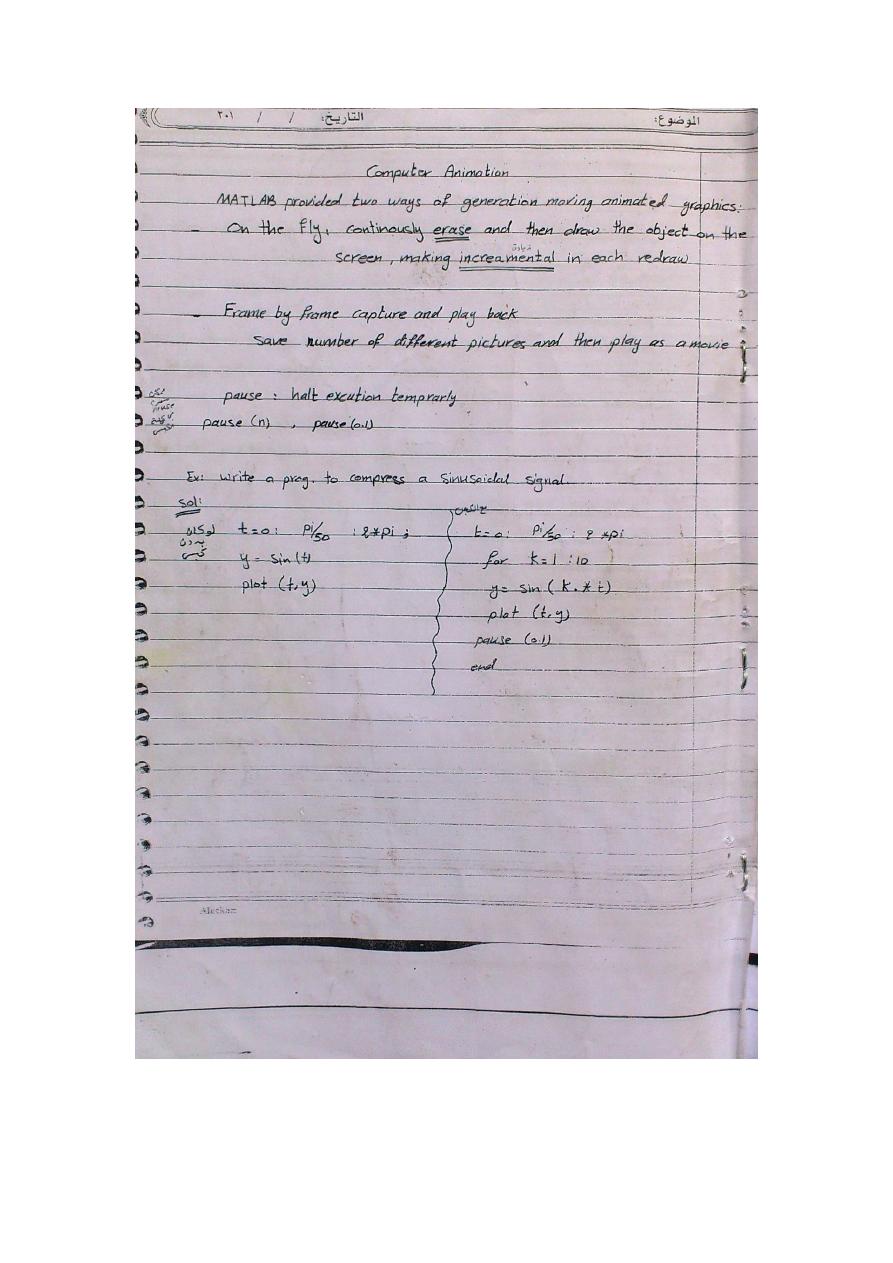 الموضوع: التاريخ: / / ٢٠١
Computer Animation
MATLAB provided two ways of generation moving animated graphics:
- On the fly, continously erase and then draw the object on the
screen, making increamental in each redraw
- Frame by frame capture and play back
save number of different pictures and then play as a movie
pause : halt excution temprarly
pause (n) , pause (0.1)
Ex: write a prog. to compress a sinusoidal signal
Sol:
t=0: pi/50 : 8*pi ;
y = sin(t)
plot (t,y)
t=0: pi/50 : 8*pi
for k=1:10
y= sin ( k.*t)
plot (t,y)
pause (0.1)
end